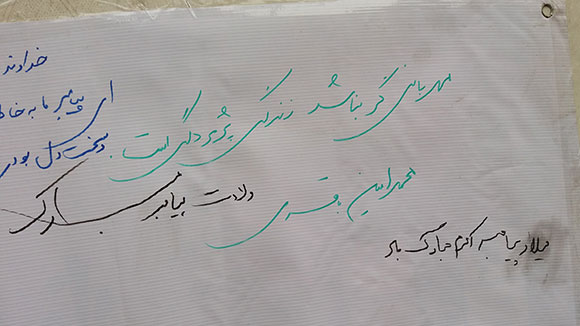 خداوند
ای پیامبر ما به خا
سخت دل بودی
مهربانی گر نباشد زندگی پژمردگی است.
محمد امین باقری
ولادت پیامبر مبارک
میلاد پیامبر اکرم مبارک باد